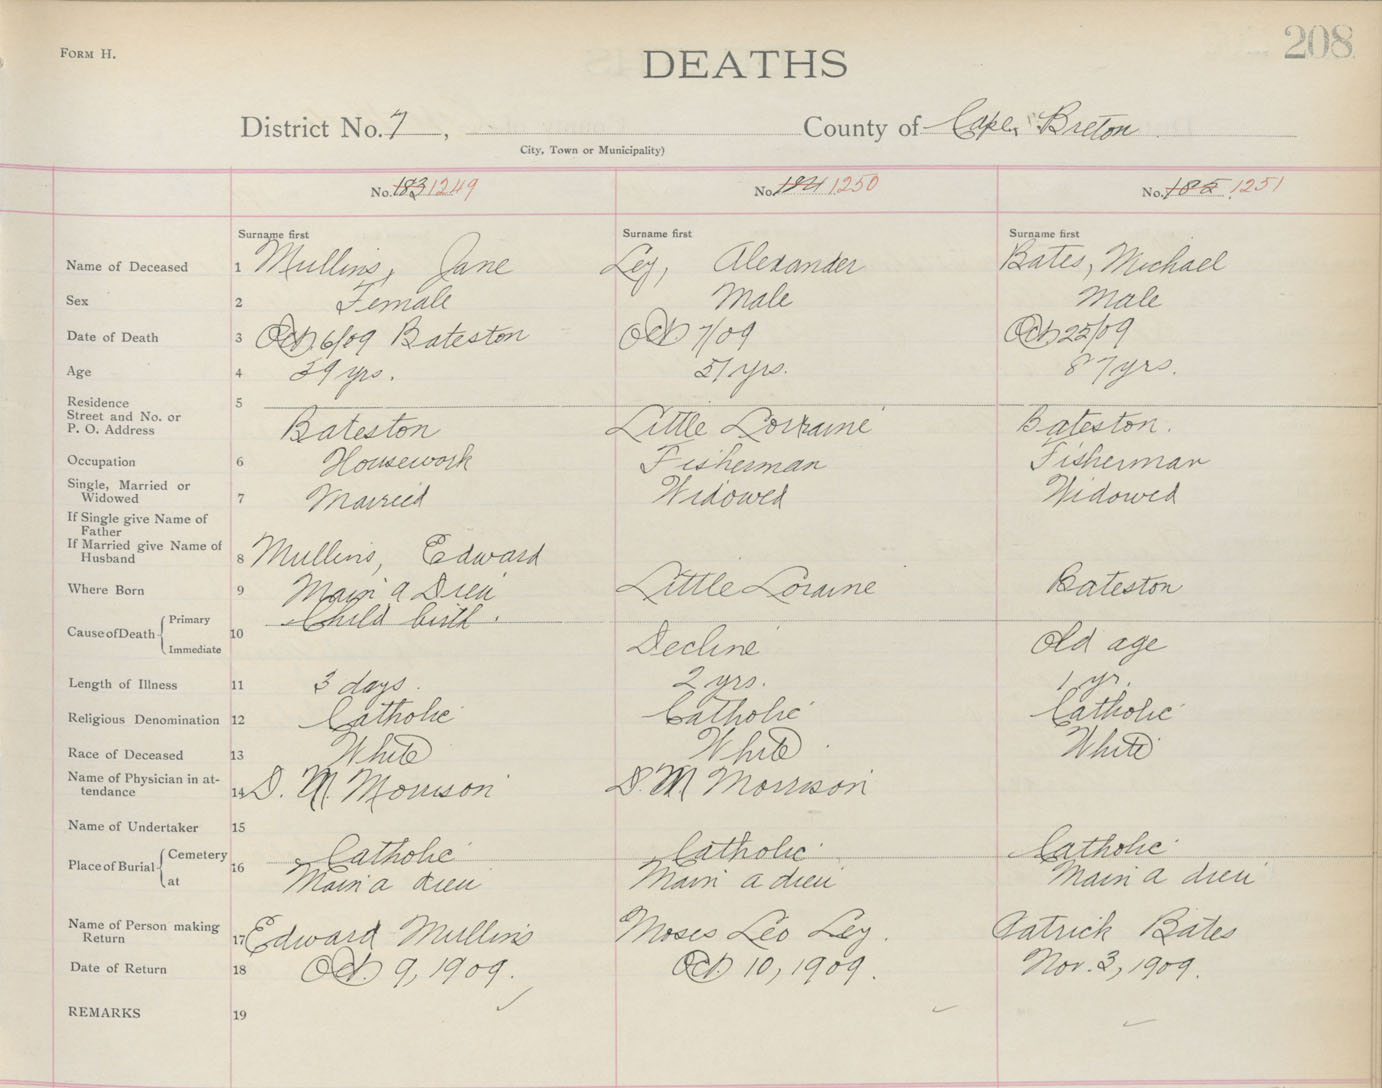 208
FORM H.
DEATHS
District No. 7, County of Cape Breton
City, Town or Municipality)
No. 183 1249 No. 184 1250 No. 185 1251
Surname first Surname first Surname first
Name of Deceased 1 Mullins, Jane Ley, Alexander Bates, Michael
Sex 2 Female Male Male
Date of Death 3 Oct 6/09 Bateston Oct 7/09 Oct 25/09
Age 4 39 yrs. 51 yrs. 87 yrs.
Residence 5
Street and No. or
P. O. Address Bateston Little Lorraine Bateston.
Occupation 6 Housework Fisherman Fisherman
Single, Married or
Widowed 7 Married Widowed Widowed
If Single give Name of
Father
If Married give Name of
Husband 8 Mullins, Edward
Where Born 9 Main a Dieu Little Loraine Bateston
Cause of Death Primary 10 Child birth.
Immediate Decline Old age
Length of Illness 11 3 days. 2 yrs. 1 yr.
Religious Denomination 12 Catholic Catholic Catholic
Race of Deceased 13 White White. White
Name of Physician in at-
tendance 14 D. M. Morrison D. M Morrison
Name of Undertaker 15
Place of Burial Cemetery 16 Catholic Catholic Catholic
at Main a dieu Main a dieu Main a dieu
Name of Person making
Return 17 Edward Mullins Moses Leo Ley. Patrick Bates
Date of Return 18 Oct 9, 1909. Oct 10, 1909. Nov. 3, 1909.
REMARKS 19